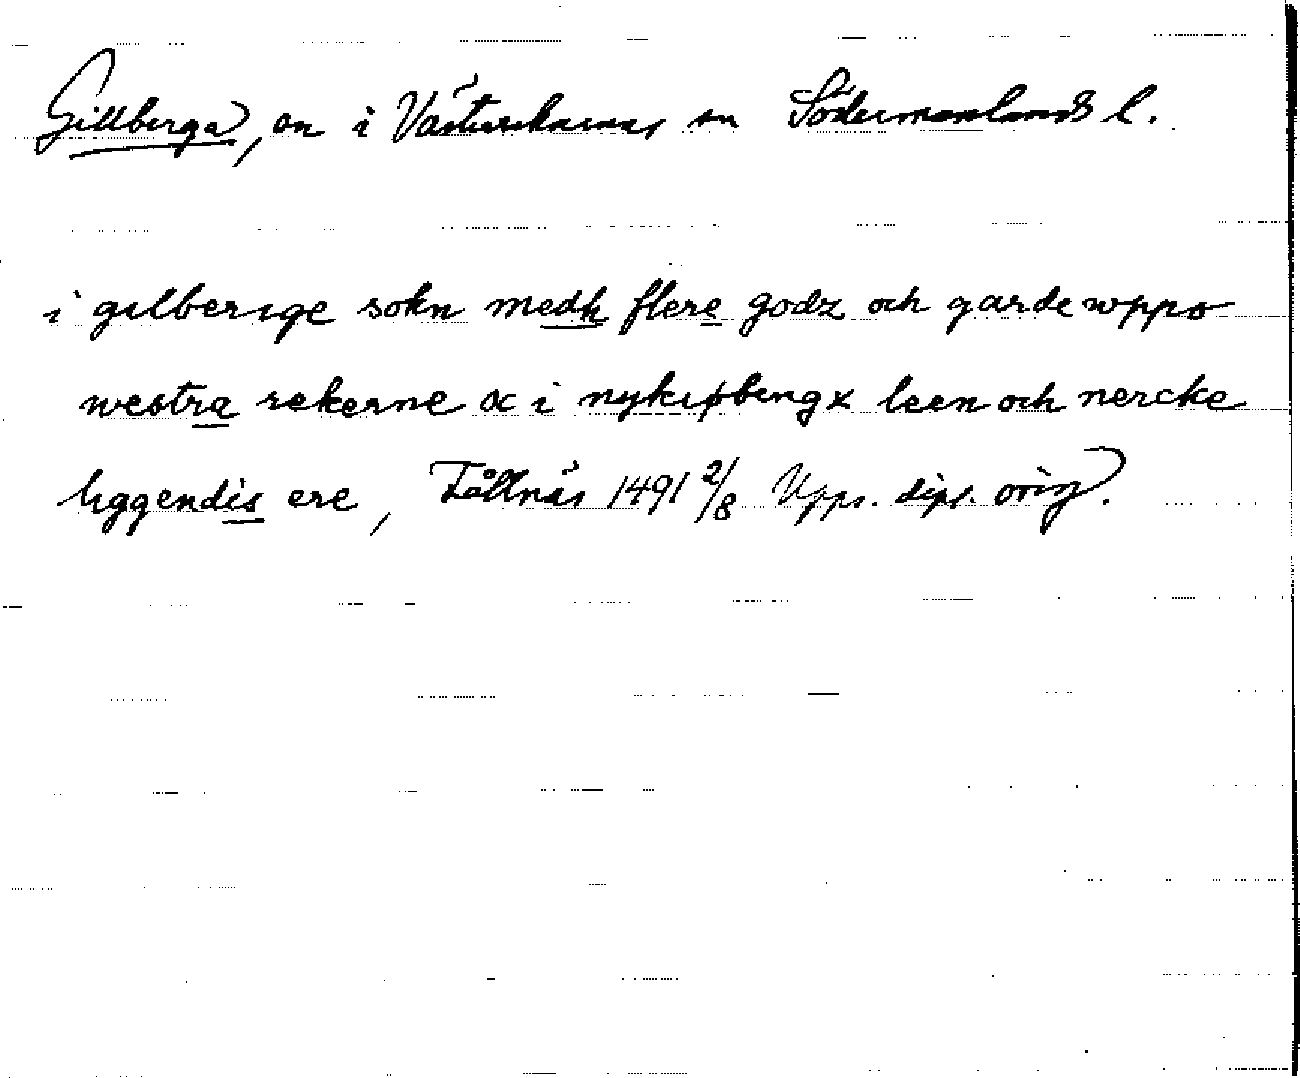 Gillberga, sn i Västerrekarnas sn Södermanlands l.
i gilberige sokn medh flere godz och garde wppo
westra rekerne oc i nykøpbingx leen och nercke
liggendis ere, Tållnäs 1491 2/8 Upps. dipl. orig.